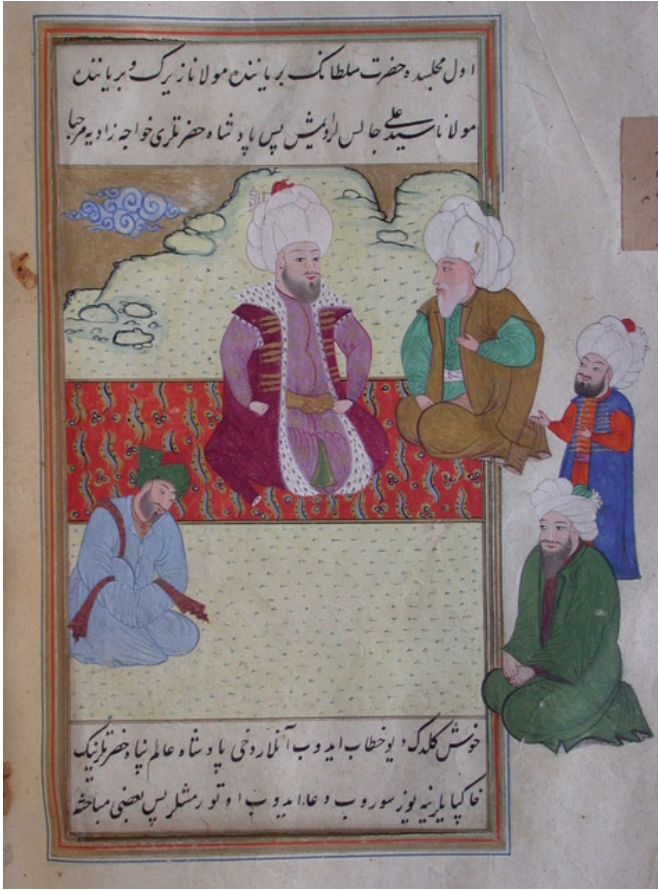 اول مجلسده حضرت سلطانك بر یاننده مولانا زیرك و بر یاننده
مولانا سید علی جالس اولمیش پس پادشاه حضرتلری خواجه زادیه مرحبا
خوش كلدك دیو خطاب ایدوب آنلار دخی پادشاه عالم پناه حضرتلرینك
خاكپایلرینه یوز سوروب و دعا ایدوب اوتورمشلر پس بعضی مباحثه